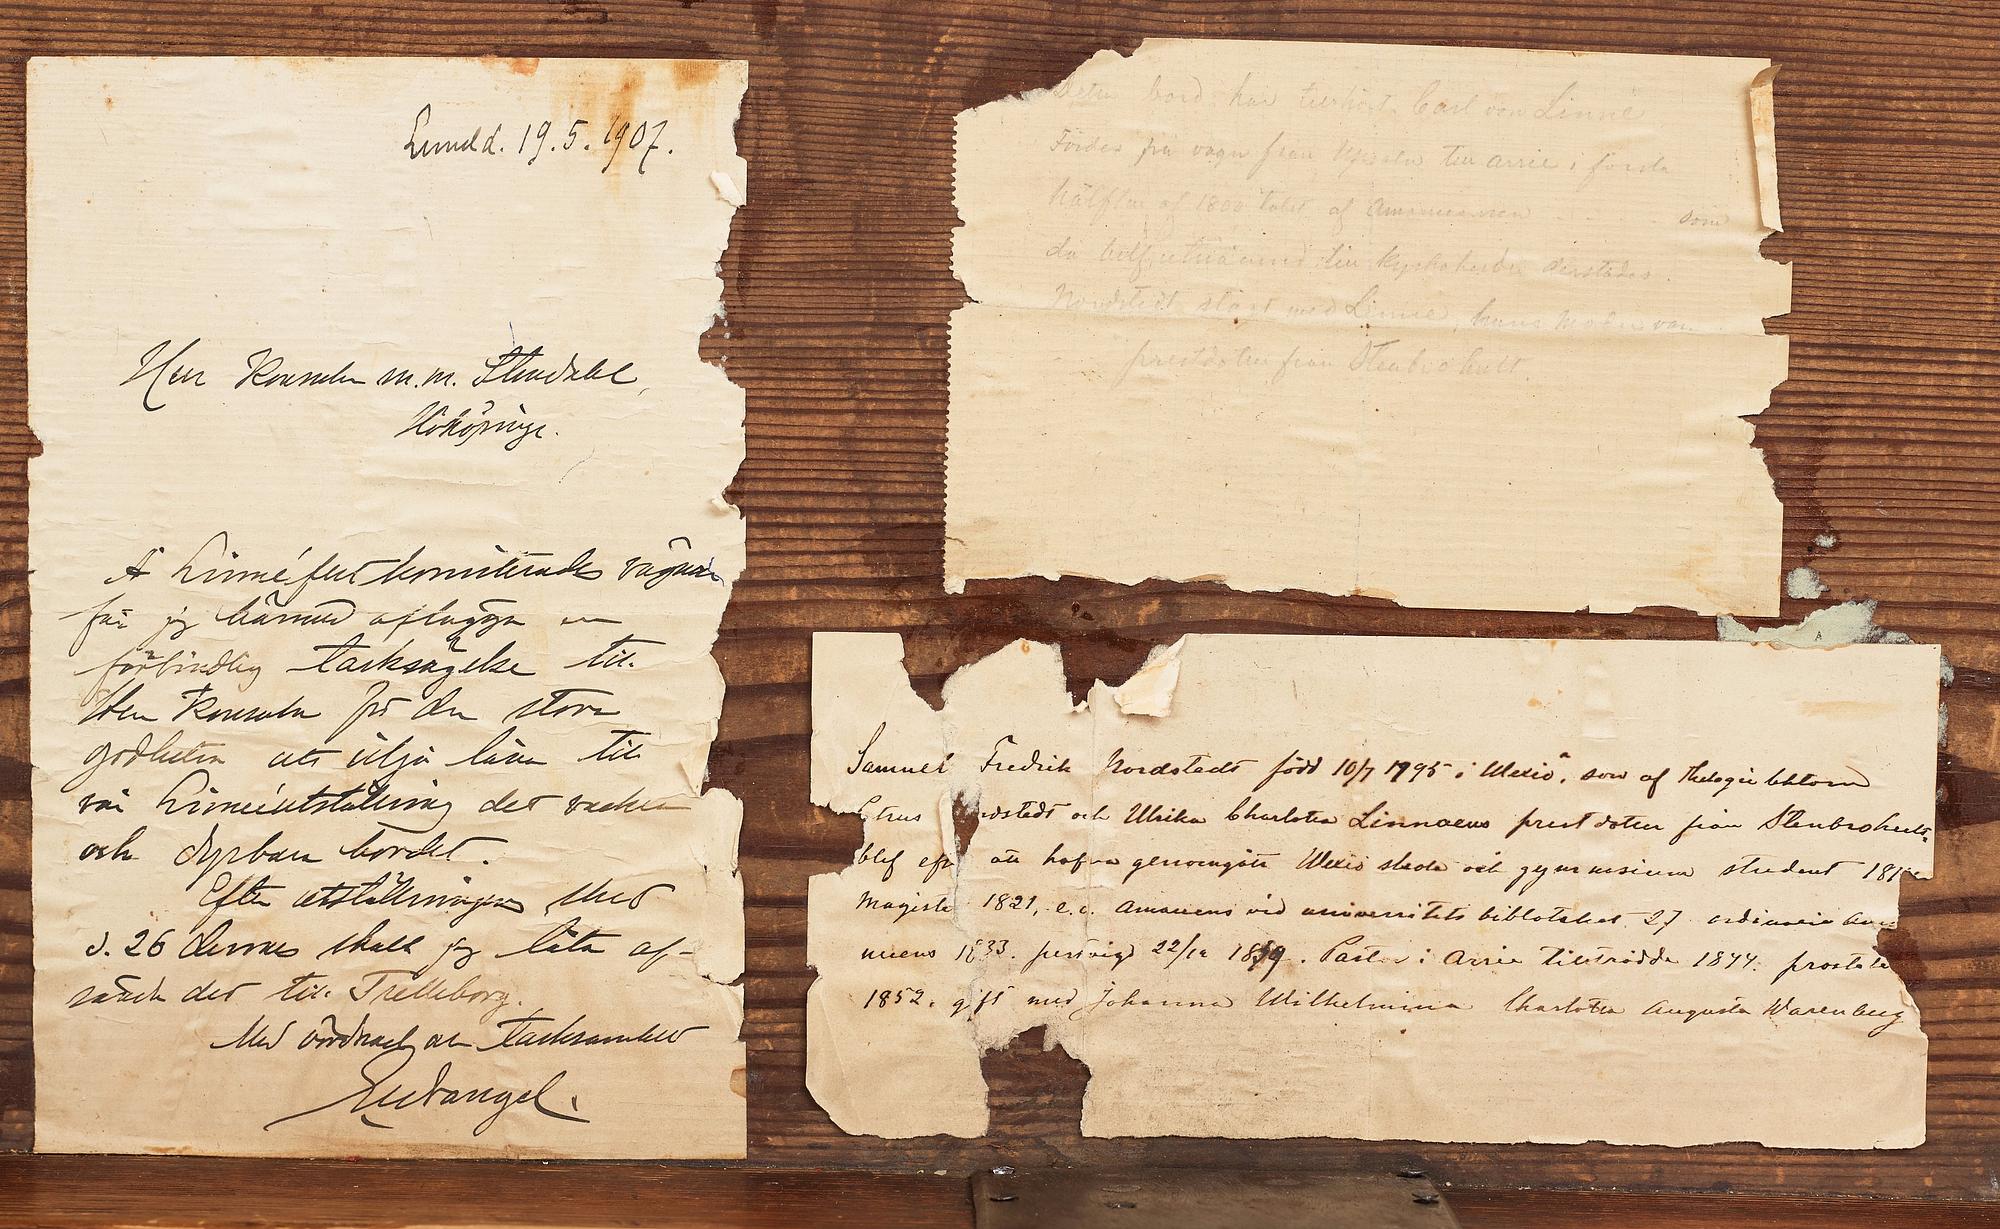 Lund d. 19.5.1907.
Herr Konsuln m.m. Stendahl,
Hököpinge.
Å Linnéfestkomiterades vägnar
får jag härmed aflägga en
förbindlig tacksägelse till
Herr Konsuln för den stora
godheten att vilja låna till
vår Linnéutställning det vackra
och dyrbara bordet.
Efter utställningens slut
d. 26 dennes skall jag låta af-
sända det till Trelleborg.
Med vördnad och tacksamhet
Detta bord har tillhört Carl von Linné
Fördes på vagn från Upsala till Arrie i första
hälften af 1800 talet af Amanuensen - - - som
då blef utnämnd till kyrkoherde derstädes.
Nordstedt slägt med Linné, hans moder var
prestdotter från Stenbrohult.
A
Samuel Fredrik Nordstedt född 10/7 1795 i Wexiö, son af Theologie lektorn
Petrus rdstedt och Ulrika Charlotta Linnaeus prestdotter från Stenbrohult.
blef eft att hafva genomgått Wexiö skola och gymnasium student 181
Magister 1821, e.o. amanuens vid universitets biblioteket 27 ordinarie ama
nuens 1833. prestvigd 22/12 1839. Pastor i Arrie tillträdde 1844. prost
1852. gift med Johanna Wilhelmina Charlotta Augusta Warenberg